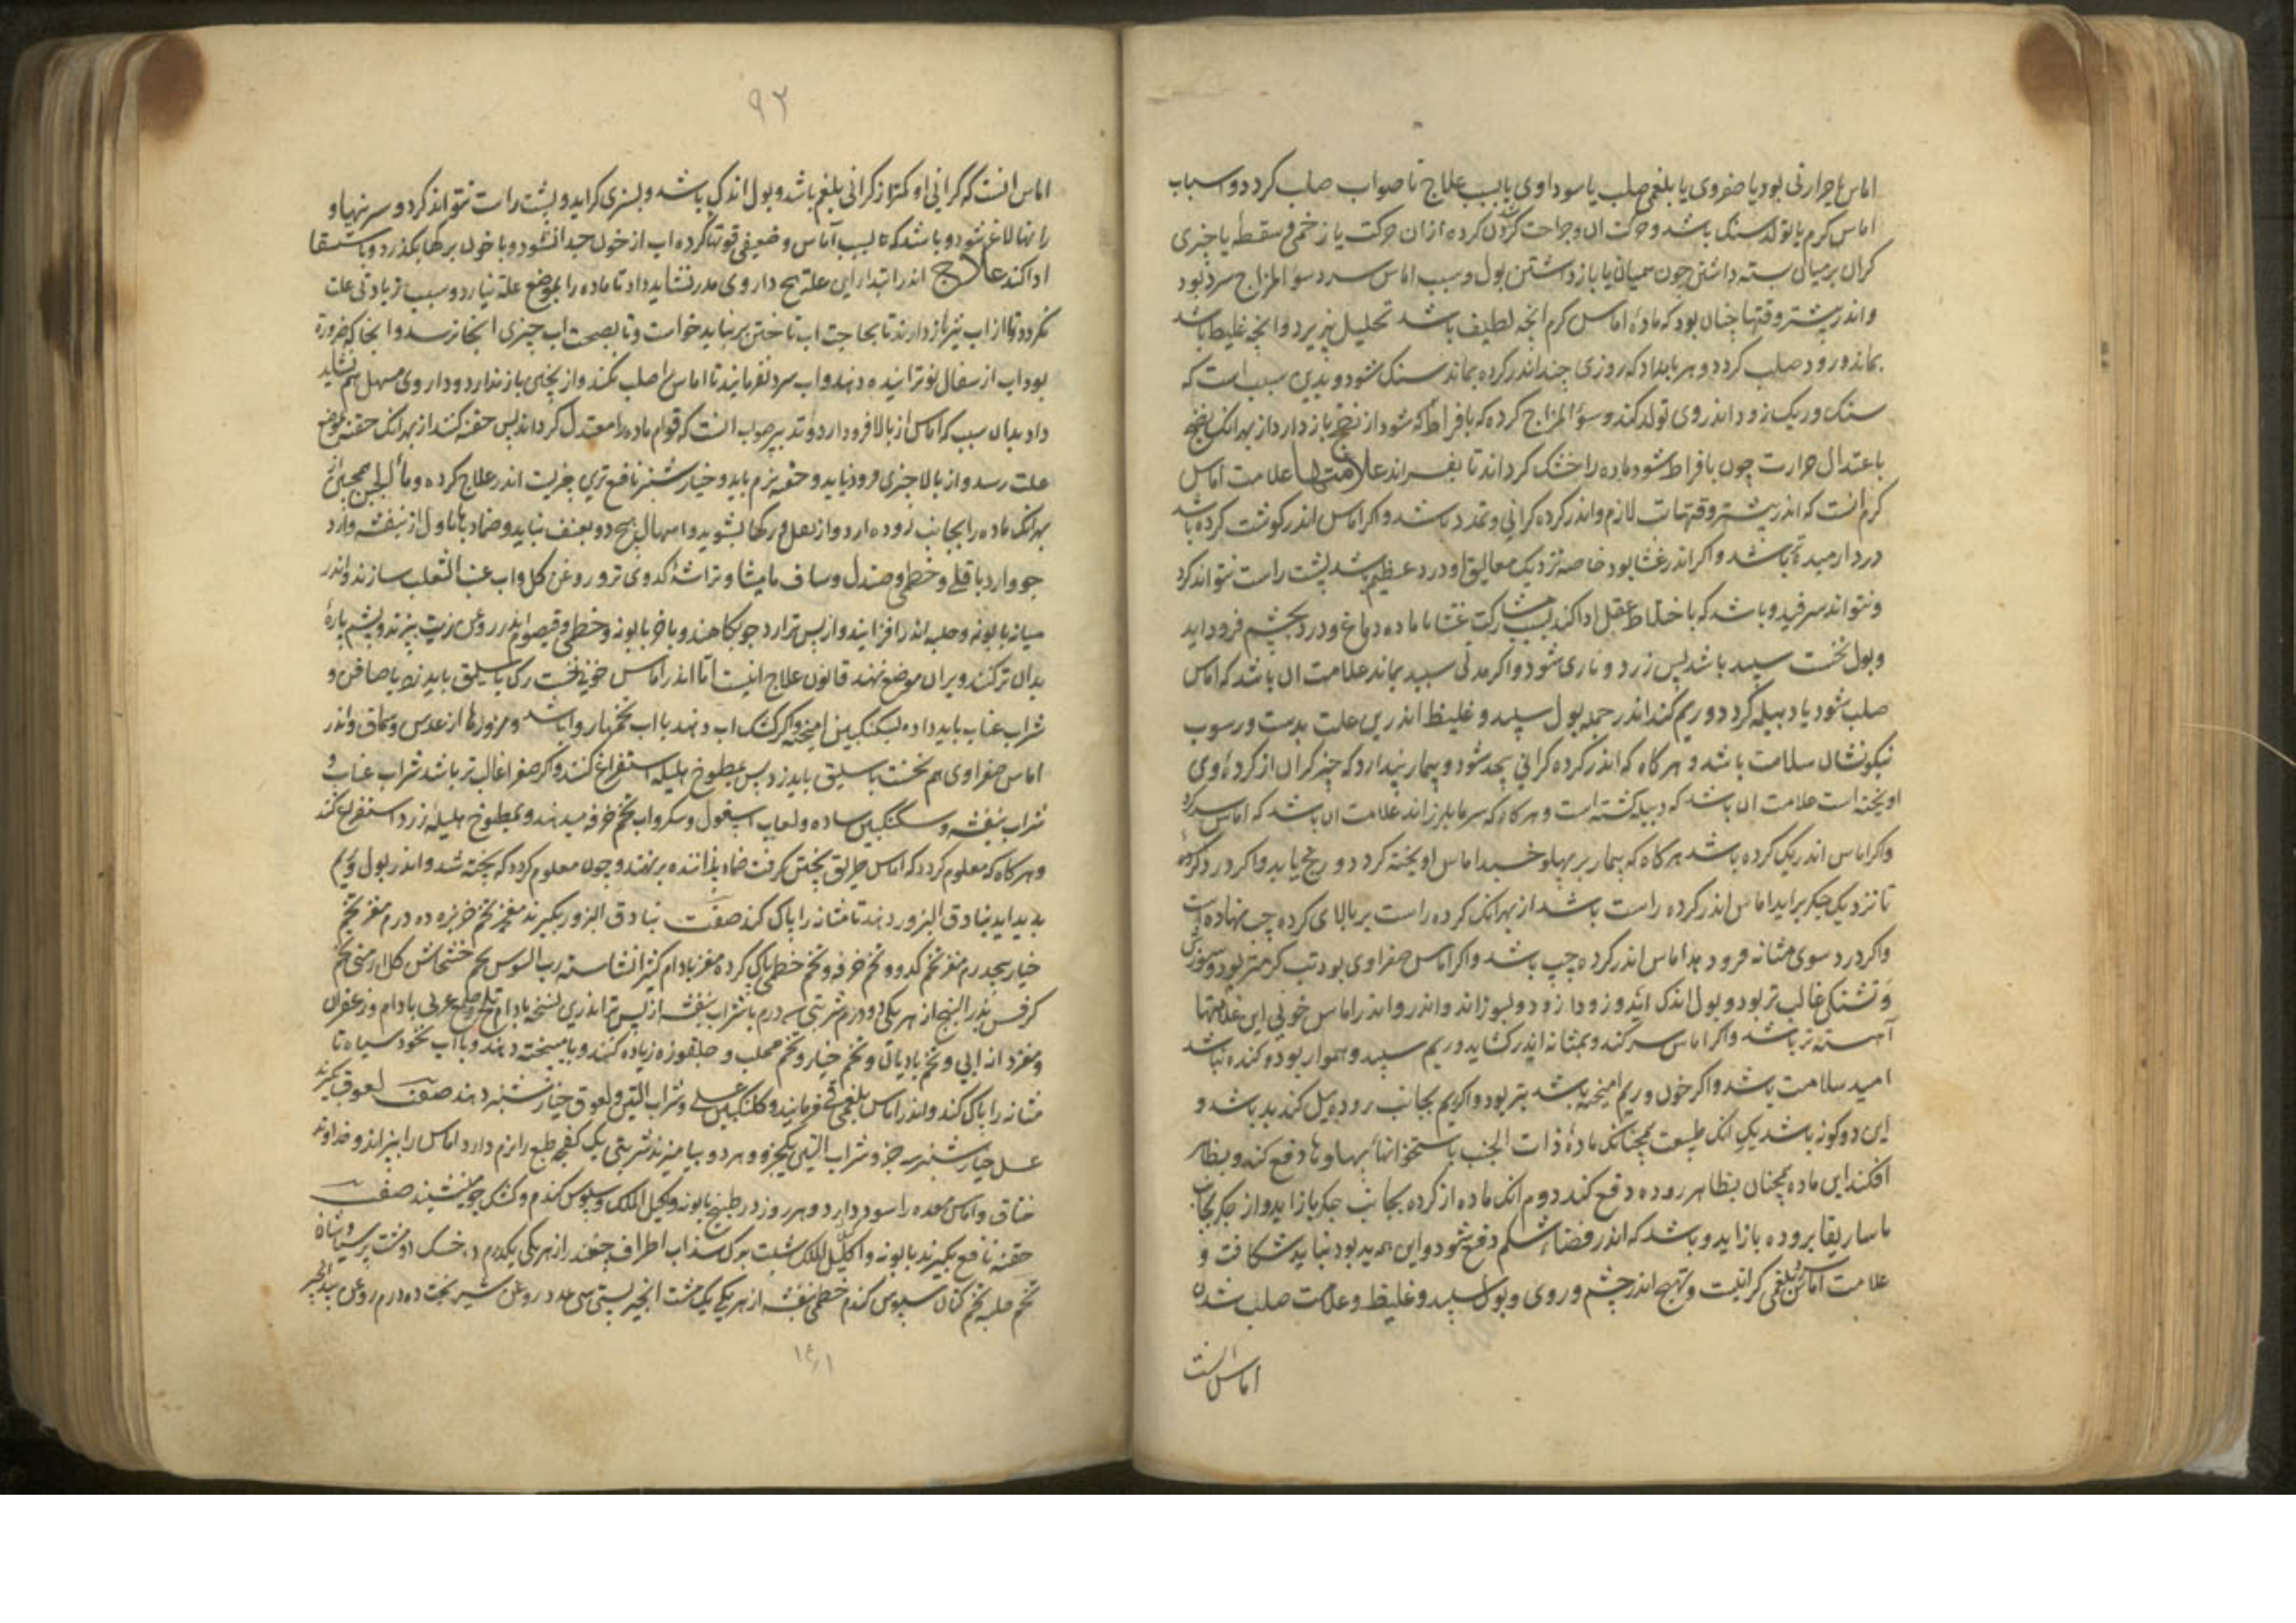 اماس یا حرارتی بود یا صفروی یا بلغمی صلب یا سوداوی یا بسبب علاج نا صواب صلب کردد و اسباب
اماس کرم یا تولد سنک باشد و حرکت ان و جراحت کردن کرده از ان حرکت یا زخمی و سقطه یا چیزی
کران بر میان بسته داشتن چون همیان یا باز داشتن بول و سبب اماس سرد سوٴ المزاج سرد بود
و اندر بیشتر وقتها چنان بود که مادهٔ اماس کرم انچه لطیف باشد تحلیل پزیرد و انچه غلیظ باشد
بماند و زود صلب کردد و هر بامداد که روزی چند اندر کرده بماند سنک شود و بدین سبب است که
سنک و ریک زود اندر وی تولد کند و سوٴ المزاج کرده که بافراط کرم شود از نضج باز دارد از بهر انک نضج
باعتدال حرارت چون بافراط شود ماده را خشک کرداند تا بفسراند علامتها علامت اماس
کرم انست که اندر بیشتر وقتها تب لازم و اندر کرده کرانی و تمدد باشد و اکر اماس اندر کوشت کرده باشد
درد ارمیده تر باشد و اکر اندر غشا بود خاصه نزدیک معالیق او درد عظیم باشد پشت راست نتواند کرد
و نتواند سرفید و باشد که باختلاط عقل ادا کند بسبب مشارکت غشا با ماده دماغ و درد بچشم فرود اید
و بول نخست سپید باشد پس زرد و ناری شود و اکر مدتی سپید بماند علامت ان باشد که اماس
صلب شود یا دبیله کردد و ریم کند اندر جمله بول سپید و غلیظ اندرین علت بدست و رسوب
نیکو نشان سلامت باشد و هر کاه که اندر کرده کرانی بیحد شود و بیمار پندارد که چیز کران از کردهٔ وی
اویخته است علامت ان باشد که دبیله کشته است و هر کاه که سرما بلرزاند علامت ان باشد که اماس سر کرد
و اکر اماس اندر یک کرده باشد هر کاه که بیمار بر پهلو خسبد اماس اویخته کردد و رنج یابد و اکر درد کرده
تا نزدیک جکر براید اماس اندر کرده راست باشد از بهر انک کرده راست بر بالای کرده چپ نهاده است
و اکر درد سوی مثانه فرود اید اماس اندر کرده چپ باشد و اکر اماس صفراوی بود تب کرمتر بود و سوزش
و تشنکی غالب تر بود و بول اندک اید و زود از زود و بسوزاند و اندر اماس خونی این علامتها
آهسته تر باشد و اکر اماس سر کند و بمثانه اندر کشاید و ریم سپید و هموار بود و کنده نباشد
امید سلامت باشد و اکر خون و ریم امیخته باشد بتر بود و اکر ریم بجانب روده میل کند بد باشد و
این دو کونه باشد یکی انک طبیعت همچنانک مادهٔ ذات الجنب باستخوانهاء پهلوها دفع کند و بظاهر
افکند این ماده همچنان بظاهر روده دفع کند دوم انک ماده از کرده بجانب جکر باز اید و از جکر بجانب
ماساریقا بروده باز اید و باشد که اندر فضاء شکم دفع شود و این همه بد بود نباید شکافت و
علامت اماس بلغمی کرانیست و تهبج اندر چشم و روی و بول سپید و غلیظ و علامت صلب شدن
اماس انست
۹۲
اماس انست که کرانی او کمتر از کرانی بلغم باشد و بول اندک باشد و بسبزی کراید و پشت راست نتواند کرد و سرینها و
رانها لاغر شود و باشد که بسبب آماس و ضعیفی قوتها کرده اب از خون جدا نشود و با خون برکها بکذرد و باستسقا
ادا کند علاج اندر ابتداء این علت هیچ داروی مدر نشاید داد تا ماده را بموضع علت نیارد و سبب زیادتی علت
نکردد و از اب نیز باز دارند تا بحاجت اب تاختن بر نباید خواست و تا بصحبت اب چیزی انجا نرسد و انجا که ضرورة
بود اب از سفال نو ترابیده دهند و اب سرد نفرمایند تا اماس را صلب نکند و از پختن باز ندارد و داروی مسهل هم نشاید
داد بدان سبب که اماس از بالا فرود ارد و تدبیر صواب انست که قوام ماده را معتدل کردانند پس حقنه کنند از بهر انک حقنه بموضع
علت رسد و از بالا چیزی فرود نیاید و حقنه نرم باید و خیار شنبر نافع تری چیزیست اندر علاج کرده و ماٴ الجبن همچنین از
بهر انک ماده را بجانب روده ارد و از بغل و رکها بشوید و اسهال هیچ دو بعنف نباید و ضمادها اول از بنفشه و ارد
جو و ارد باقلی و خطمی و صندل و شیاف مامیثا و تراشهٔ کدوی تر و روغن کل و اب عنب الثعلب سازند و اندر
میانه بابونه و حلبه اندر افزایند و از پس تر ارد جو بکاهند و باخر بابونه و خطمی و قیصوم اندر روغن زیت بپزند و پشم پارهٔ
بدان تر کنند و بر ان موضع نهند قانون علاج اینست اما اندر اماس خونی نخست رک باسلیق باید زد یا صافن و
شراب عناب باید داد با سکنکبین امیخته و اکر کشک اب دهند با اب تخمها روا باشد و مزورها از عدس و سماق و اندر
اماس صفراوی هم نخست باسلیق باید زد پس بمطبوخ هلیله استفراغ کنند و اکر صفرا غالب تر باشد شراب عناب و
شراب بنفشه و سکنکبین ساده و لعاب اسبغول و سکر و اب تخم خرفه میدهند و بمطبوخ هلیلهٔ زرد استفراغ کند
و هر کاه که معلوم کردد که اماس طریق پختن کرفت ضماد پزاننده بر نهند و چون معلوم کردد که پخته شد و اندر بول ریم
پدید اید بنادق البزور دهند تا مثانه را پاک کند صفت بنادق البزور بکیرند مغز تخم خربزه ده درم مغز تخم
خیار پنجدرم مغز تخم کدو و تخم خرفه و تخم خطمی پاک کرده مغز بادام کثیرا نشاسته رب السوس تخم خشخاش کل ارمنی تخم
کرفس بذر البنج از هر یکی دو درم شربتی سه درم با شراب بنفشه از پس تر اندرین نسخه بادام تلخ و صمغ عربی بادام و زعفران
و مغز دانه ابی و تخم بادیان و تخم خیار و تخم محلب و جلغوزه زیاده کنند و با میبخته دهند و با اب نخود سیاه تا
مثانه را پاک کند و اندر اماس بلغمی قی فرمایند و کلنکبین عسلی و شراب التین و لعوق خیار شنبر دهند صفت لعوق بکیرند
عسل خیار شنبر سه جزو شراب التین یکجزو و هر دو بیامیزند شربتی یک کفچه طبع را نرم دارد اماس را بپزاند و خداوند
خناق و اماس معده را سود دارد و هر روز در طبیخ بابونه و اکلیل الملک و سبوس کندم و کشک جو نشیند صفت
حقنه نافع بکیرند بابونه و اکلیل الملک شبت برک سذاب اطراف چغندر از هر یکی یکدرم خسک دو مشت پرسیاوشان
تخم حلبه تخم کتان سبوس کندم خطمی بنفشه از هر یکی یک مشت انجیر بستی سی عدد روغن شیر پخت ده درم روغن بید انجیر
۱۶۱